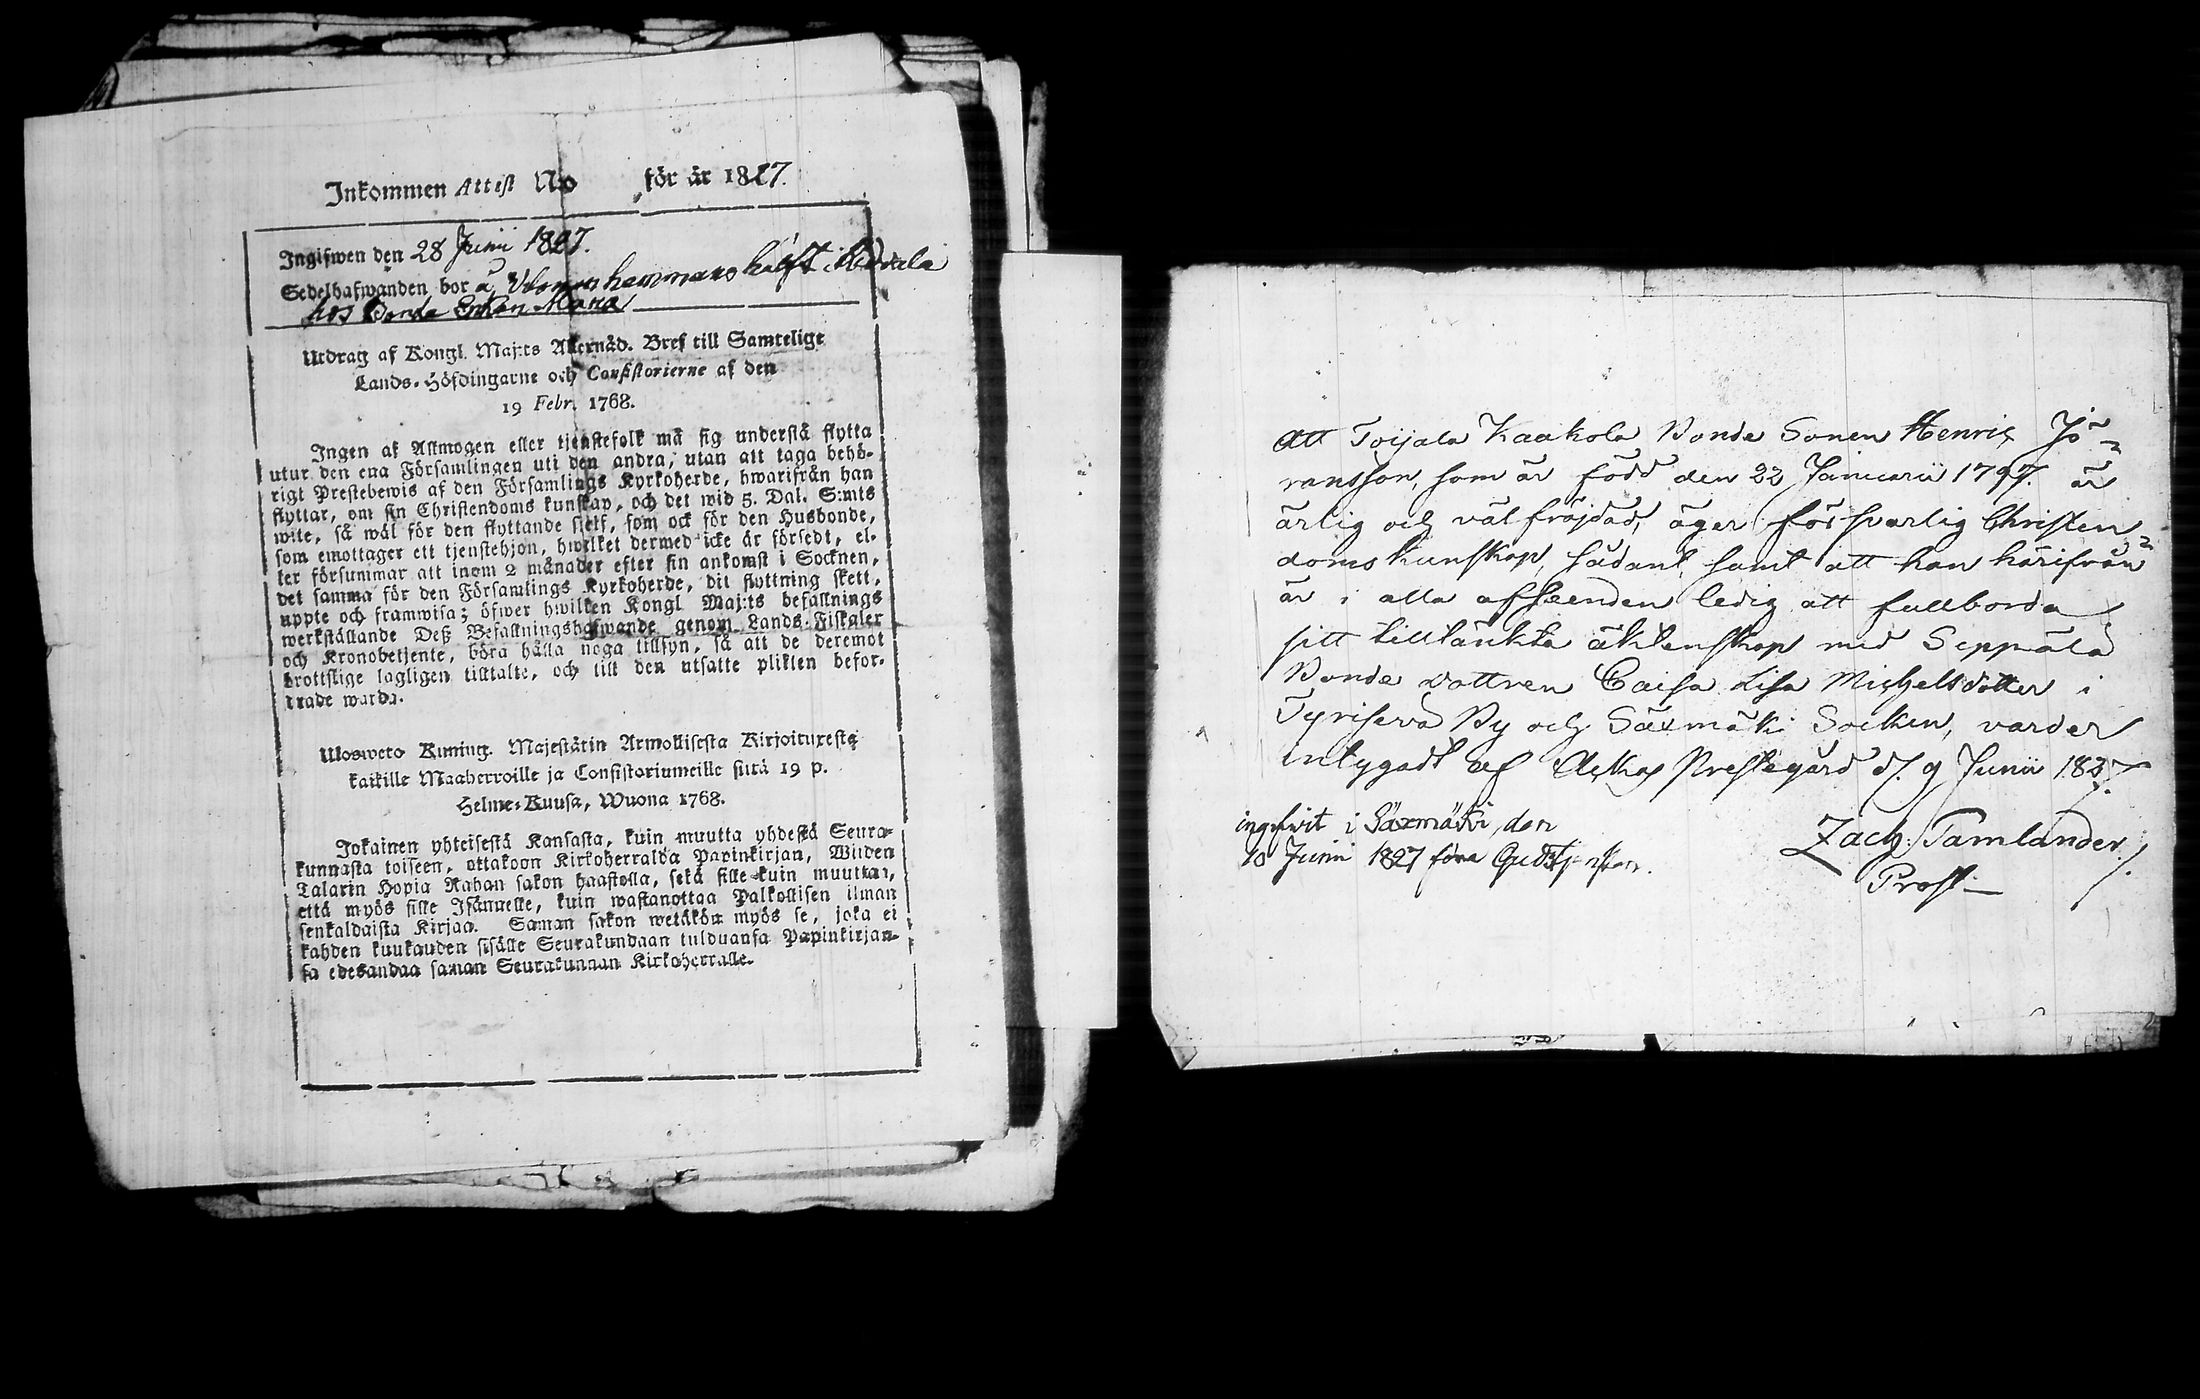 Inkommen Attest No för år 1827.
Ingifwen den 28 Junii 1827.
Sedelhafwanden bor å hemmans hälft i
hos Bonde Enkan Maria
Utdrag af Kongl. Maj:ts Allernåd. Bref till Samtelige
Lands-Höfdingarne och Consistorierne af den
19 Febr. 1768.
Ingen af Allmogen eller tjenstefolk må sig understå flytta
utur den ena Församlingen uti den andra, utan att taga behö-
rigt Prestebewis af den Församlings Kyrkoherde, hwarifrån han
flyttar, om sin Christendoms kunskap, och det wid 5. Dal. S:mts
wite, så wäl för den flyttande sjelf, som ock för den Husbonde,
som emottager ett tjenstehjon, hwilket dermed icke är försedt, el-
ler försummar att inom 2 månader efter sin ankomst i Socknen,
det samma för den Församlings Kyrkoherde, dit flyttning skett,
uppte och framwisa; öfwer hwilken Kongl Maj:ts befallnings
werkställande Deß Befallningshafwande genom Lands-Fiskaler
och Kronobetjente, böra hålla noga tillsyn, så att de deremot
brottslige lagligen tilltalte, och till den utsatte plikten befor-
drade warda.
Ulosweto Kuning. Majestätin Armollisesta Kirjoituxesta
kaikille Maaherroille ja Consistoriumeille siitä 19 p.
Helme-Kuusa, Wuona 1768.
Jokainen yhteisestä Kansasta, kuin muutta yhdestä Seura-
kunnasta toiseen, ottakoon Kirkoherralda Papinkirjan, Wiiden
Talarin Hopia Rahan sakon haastolla, sekä sille kuin muuttaa,
että myös sille Isännelle, kuin wastanottaa Palkollisen ilman
senkaldaista Kirjaa. Saman sakon wetäkön myös se, joka ei
kahden kuukauden sisälle Seurakundaan tulduansa Papinkirjan-
sa edesandaa saman Seurakunnan Kirkoherralle.
Att Toijala Kaakola Bonde Sonen Henric Jö-
ransson, som är född den 22 Januarii 1797. är
ärlig och välfräjdad, äger försvarlig Christen-
doms kunskap, sådant, samt att han härifrån
är i alla afseenden ledig att fullborda
sitt tilltänkta äktenskap med Seppälä
Bonde dottren Caisa Lisa Michelsdotter i
Tyriseva By och Säxmäki Socken, varder
intygadt af Ackas Prestegård d. 9 Junii 1827.
ingifwit i Säxmäki, den
10 Junii 1827 före Gudstjensten.
Zach: Tamlander
Prost